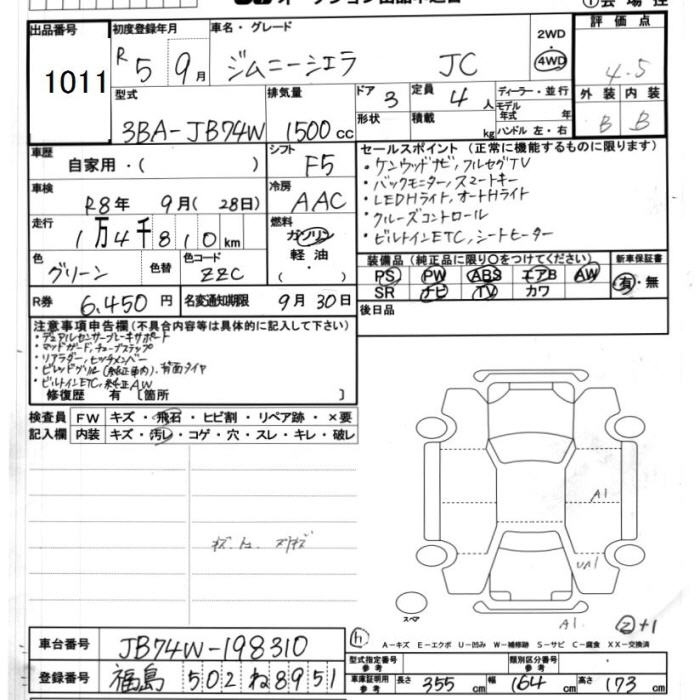 オークション出品申込書
出品番号 初度登録年月 車名・グレード 2WD 評価点
1011 R 5 9月 ジムニーシエラ JC 4WD 4.5
型式 排気量 ドア 3 定員 4人 ディーラー・並行 外装 内装
3BA-JB74W 1500cc 形状 積載 kg モデル年式 年 ハンドル 左・右 B B
車歴 シフト セールスポイント(正常に機能するものに限ります)
自家用・( ) F5 ・ケンウッドナビ,フルセグTV
車検 冷房 ・バックモニター,スマートキー
R8年 9月(28日) AAC ・LEDHライト,オートHライト
走行 燃料 ・クルーズコントロール
1万4千810km ガソリン ・ビルトインETC,シートヒーター
色 色替 色コード 軽油 装備品(純正品に限り○をつけてください) 新車保証書
グリーン ZZC ・( ) PS PW ABS エアB AW 有・無
SR ナビ TV カワ
R券 6,450円 名変通知期限 9月30日 後日品
注意事項申告欄(不具合内容等は具体的に記入して下さい)
・デュアルセンサーブレーキサポート
・マッドガード,
・リアラダー,
・ビルトインETC,純正AW
修復歴 有 [箇所 ]
検査員 FW キズ・飛石・ヒビ割・リペア跡・×要
記入欄 内装 キズ・汚レ・コゲ・穴・スレ・キレ・破レ
A1
UA1
スペア
A1 ②+1
車台番号 JB74W-198310
A-キズ E-エクボ U-凹み W-補修跡 S-サビ C-腐食 XX-交換済
登録番号 福島 502 ね 8951
型式指定番号 参考 類別区分番号 参考
車庫証明用 参考 長さ 355cm 幅 164cm 高さ 173cm